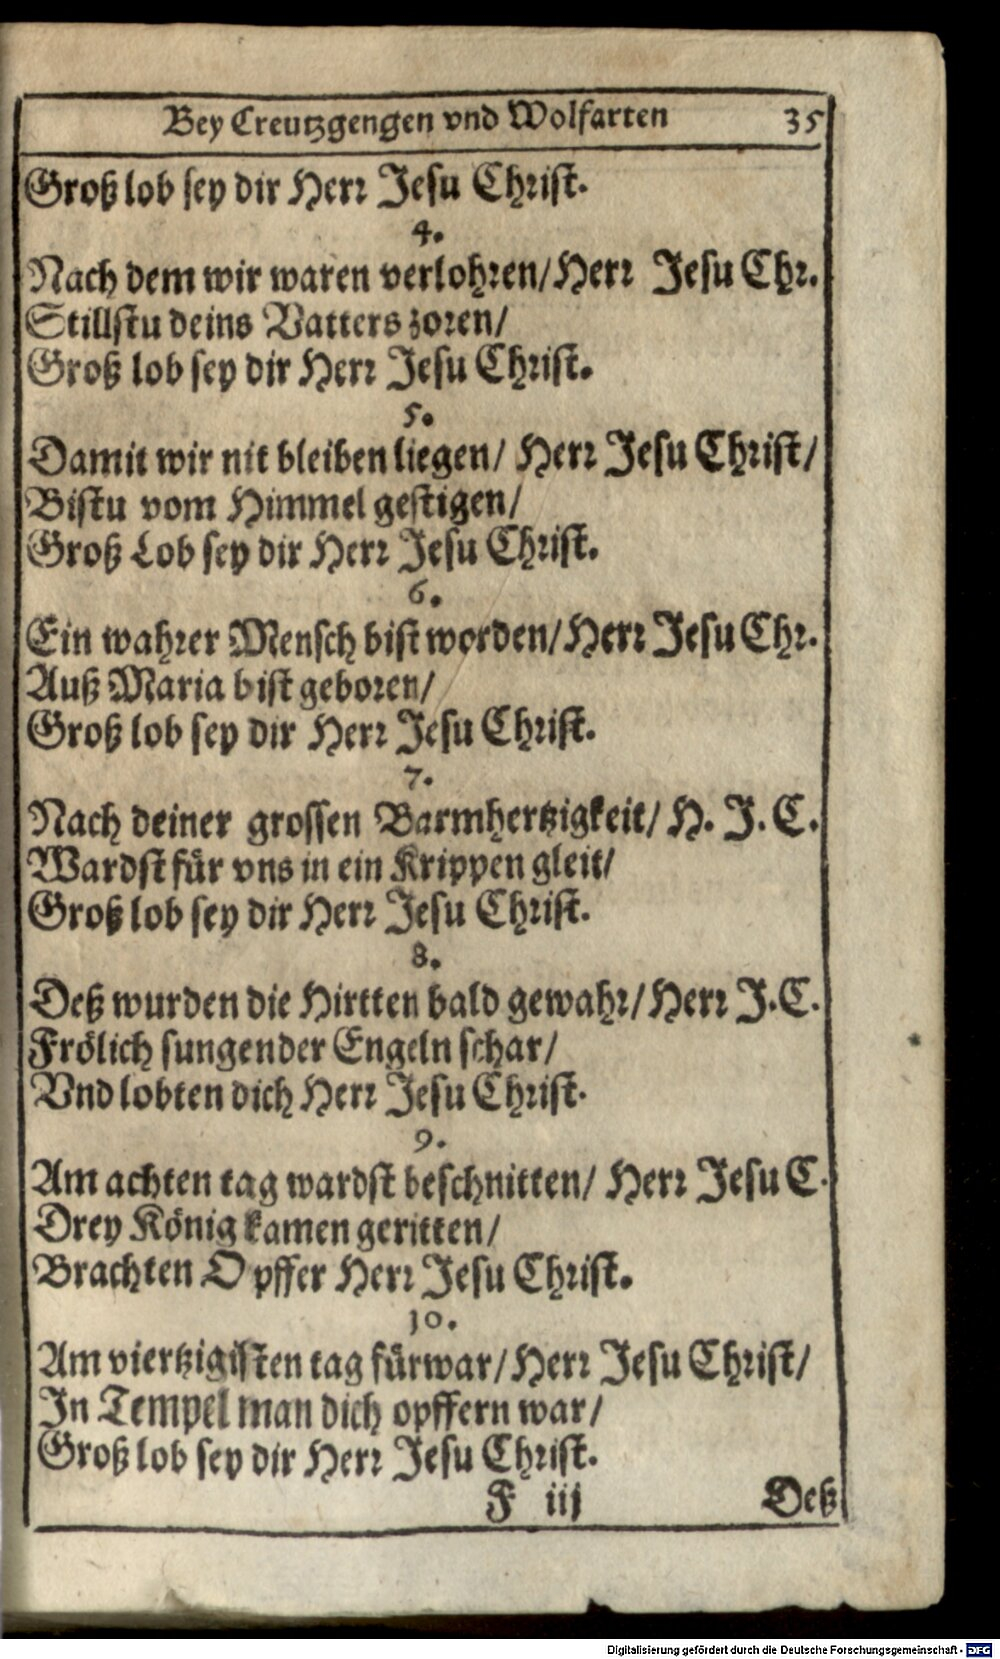 Bey Creutzgengen vnd Wolfarten 35
Groß lob sey dir Herr Jesu Christ.
4.
Nach dem wir waren verlohren/ Herr Jesu Chr.
Stillstu deins Vatters zoren/
Groß lob sey dir Herr Jesu Christ.
5.
Damit wir nit bleiben liegen/ Herr Jesu Christ/
Bistu vom Himmel gestigen/
Groß Lob sey dir Herr Jesu Christ.
6.
Ein wahrer Mensch bist worden/ Herr Jesu Chr.
Auß Maria bist geboren/
Groß lob sey dir Herr Jesu Christ.
7.
Nach deiner grossen Barmhertzigkeit/ H. J. C.
Wardst für vns in ein Krippen gleit/
Groß lob sey dir Herr Jesu Christ.
8.
Deß wurden die Hirtten bald gewahr/ Herr J. C.
Frölich sungen der Engeln schar/
Vnd lobten dich Herr Jesu Christ.
9.
Am achten tag wardst beschnitten/ Herr Jesu C.
Drey König kamen geritten/
Brachten Opffer Herr Jesu Christ.
10.
Am viertzigisten tag fürwar/ Herr Jesu Christ/
In Tempel man dich opffern war/
Groß lob sey dir Herr Jesu Christ.
F iij Deß
Digitalisierung gefördert durch die Deutsche Forschungsgemeinschaft - DFG